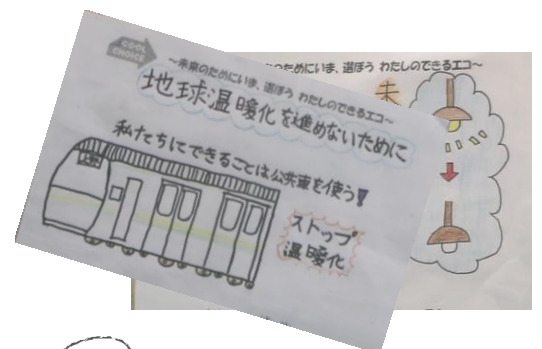 COOL CHOICE
～未来のためにいま、選ぼう わたしのできるエコ～
地球温暖化を進めないために
私たちにできることは公共車を使う!
ストップ
温暖化
のためにいま、選ぼう わたしのできるエコ～
未